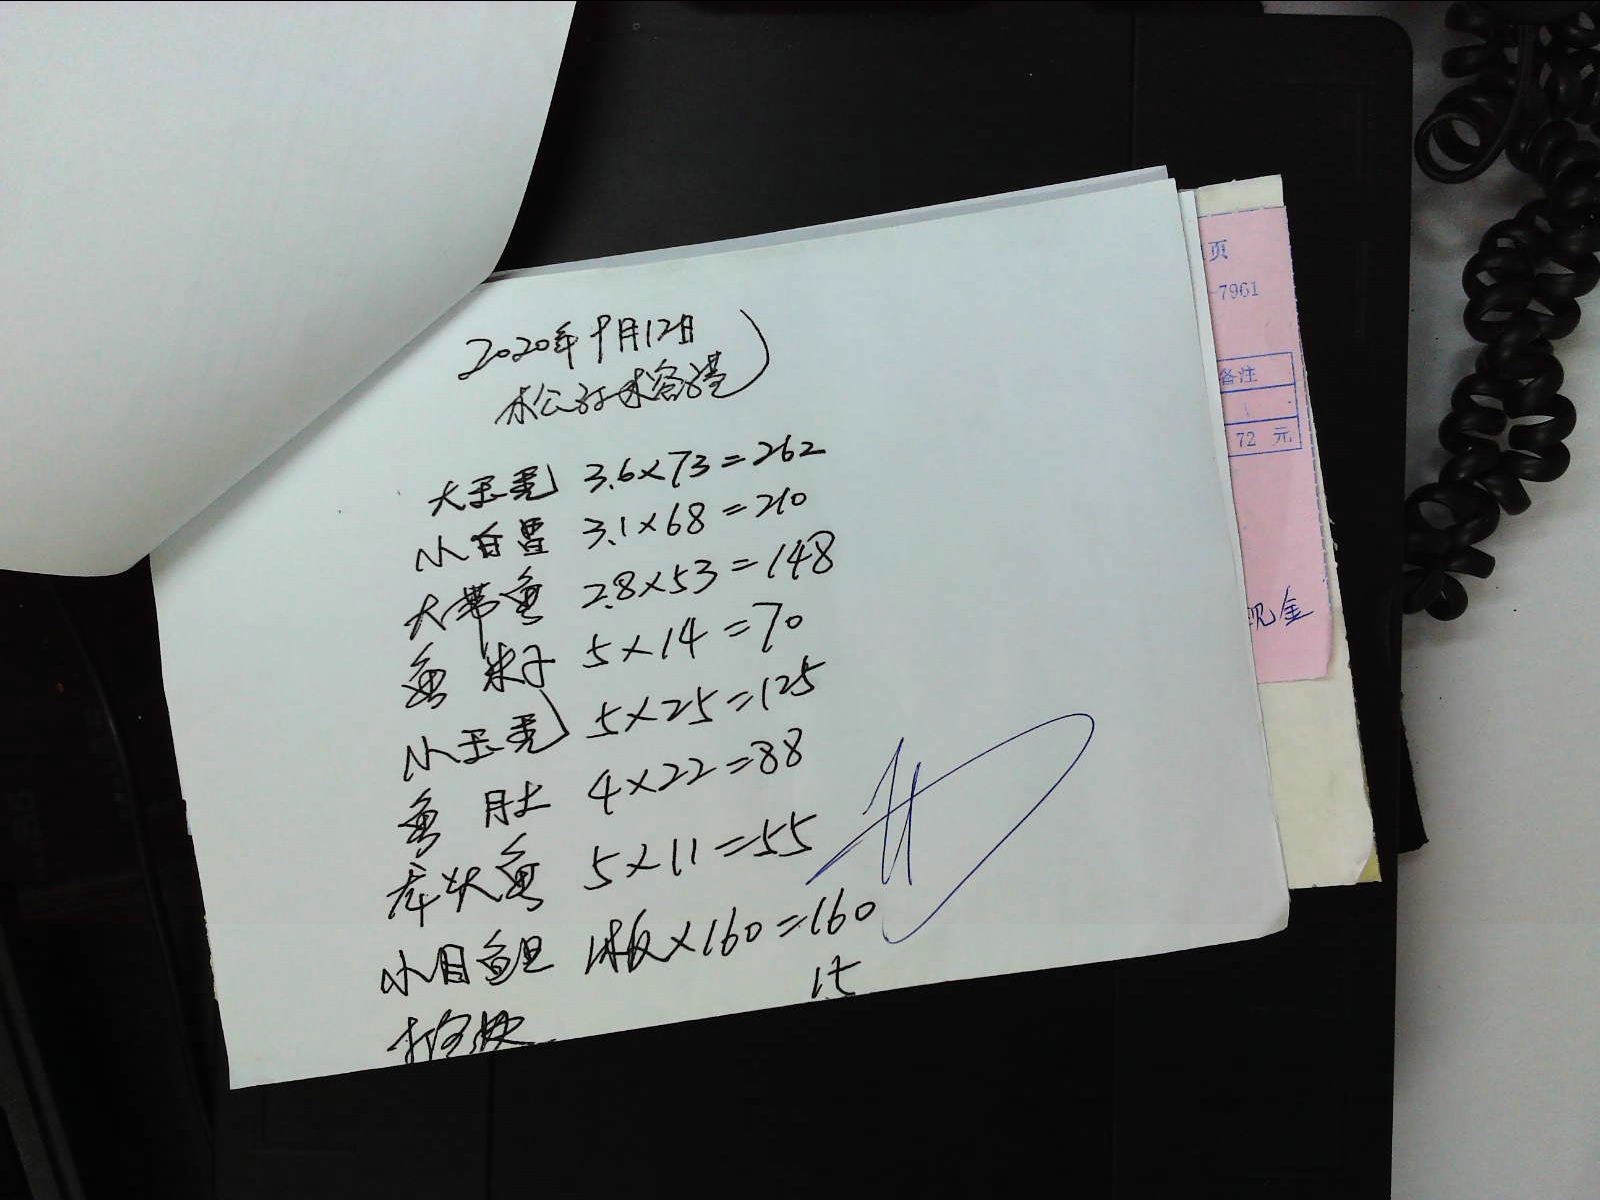 2020年9月12日
大玉秃 3.6×73=262
小白昌 3.1×68=210
大带鱼 2.8×53=148
鱼 米子 5×14=70
小玉秃 5×25=125
鱼 月土 4×22=88
鱼 5×11=55
小目鱼旦 1板×160=160
15
页
-7961
备注
72 元
现金